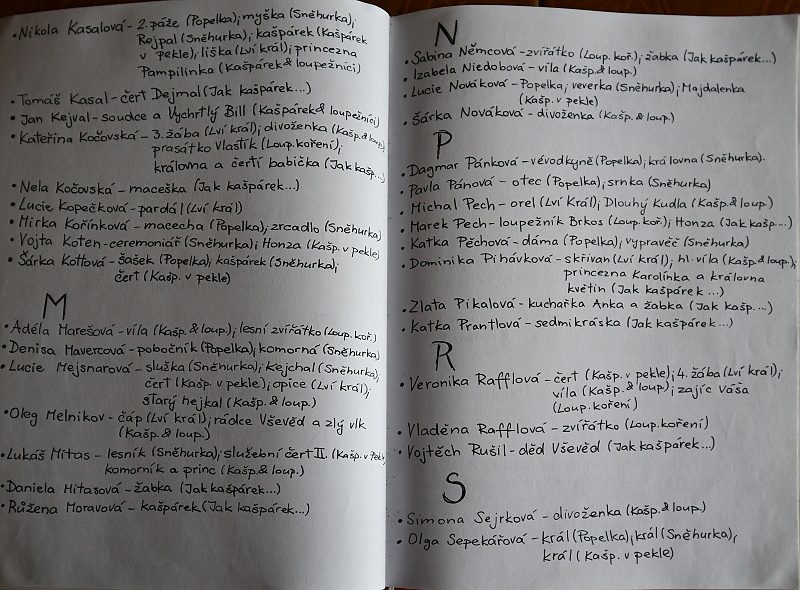 • Nikola Kasalová - 2. páže (Popelka); myška (Sněhurka);
Rejpal (Sněhurka); kašpárek (Kašpárek
v pekle); liška (Lví král); princezna
Pampilinka (Kašpárek & loupežníci)
• Tomáš Kasal - čert Dejmal (Jak kašpárek...)
• Jan Kejval - soudce a Vychrtlý Bill (Kašpárek & loupežníci)
• Kateřina Kočovská - 3. žába (Lví král); divoženka (Kašp. & loup.)
prasátko Vlastík (Loup. koření);
královna a čertí babička (Jak kašp...)
• Nela Kočovská - maceška (Jak kašpárek...)
• Lucie Kopečková - pardál (Lví král)
• Mirka Kořínková - macecha (Popelka); zrcadlo (Sněhurka)
• Vojta Koten - ceremoniář (Sněhurka); Honza (Kašp. v pekle)
• Šárka Kottová - šašek (Popelka); kašpárek (Sněhurka);
čert (Kašp. v pekle)
M
• Adéla Marešová - víla (Kašp. & loup.); lesní zvířátko (Loup. koř.)
• Denisa Mavercová - pobočník (Popelka); komorná (Sněhurka)
• Lucie Mejsnarová - služka (Sněhurka); Kejchal (Sněhurka);
čert (Kašp. v pekle); opice (Lví král);
starý hejkal (Kašp. & loup.)
• Oleg Melnikov - čáp (Lví král); rádce Vševěd a zlý vlk
(Kašp. & loup.)
• Lukáš Mitas - lesník (Sněhurka); služební čert II. (Kašp. v pekle)
komorník a princ (Kašp. & loup.)
• Daniela Mitasová - žabka (Jak kašpárek...)
• Růžena Moravová - kašpárek (Jak kašpárek...)
N
• Sabina Němcová - zvířátko (Loup. koř.); žabka (Jak kašpárek...)
• Izabela Niedobová - víla (Kašp. & loup.)
• Lucie Nováková - Popelka; veverka (Sněhurka); Majdalenka
(Kašp. v pekle)
• Šárka Nováková - divoženka (Kašp. & loup.)
P
• Dagmar Pánková - vévodkyně (Popelka); královna (Sněhurka).
• Pavla Pánová - otec (Popelka); srnka (Sněhurka)
• Michal Pech - orel (Lví král); Dlouhý Kudla (Kašp. & loup.)
• Marek Pech - loupežník Brkos (Loup. koř.); Honza (Jak kašp...)
• Katka Pěchová - dáma (Popelka); vypravěč (Sněhurka)
• Dominika Pihávková - skřivan (Lví král); hl. víla (Kašp. & loup.);
princezna Karolínka a královna
květin (Jak kašpárek...)
• Zlata Pikalová - kuchařka Anka a žabka (Jak kašp....)
• Katka Prantlová - sedmikráska (Jak kašpárek...)
R
• Veronika Rafflová - čert (Kašp. v pekle); 4. žába (Lví král);
víla (Kašp. & loup); zajíc Váša
(Loup. koření)
• Vladěna Rafflová - zvířátko (Loup. koření)
• Vojtěch Rušil - děd Vševěd (Jak kašpárek...)
S
• Simona Sejrková - divoženka (Kašp. & loup.)
• Olga Sepekářová - král (Popelka); král (Sněhurka);
král (Kašp. v pekle)